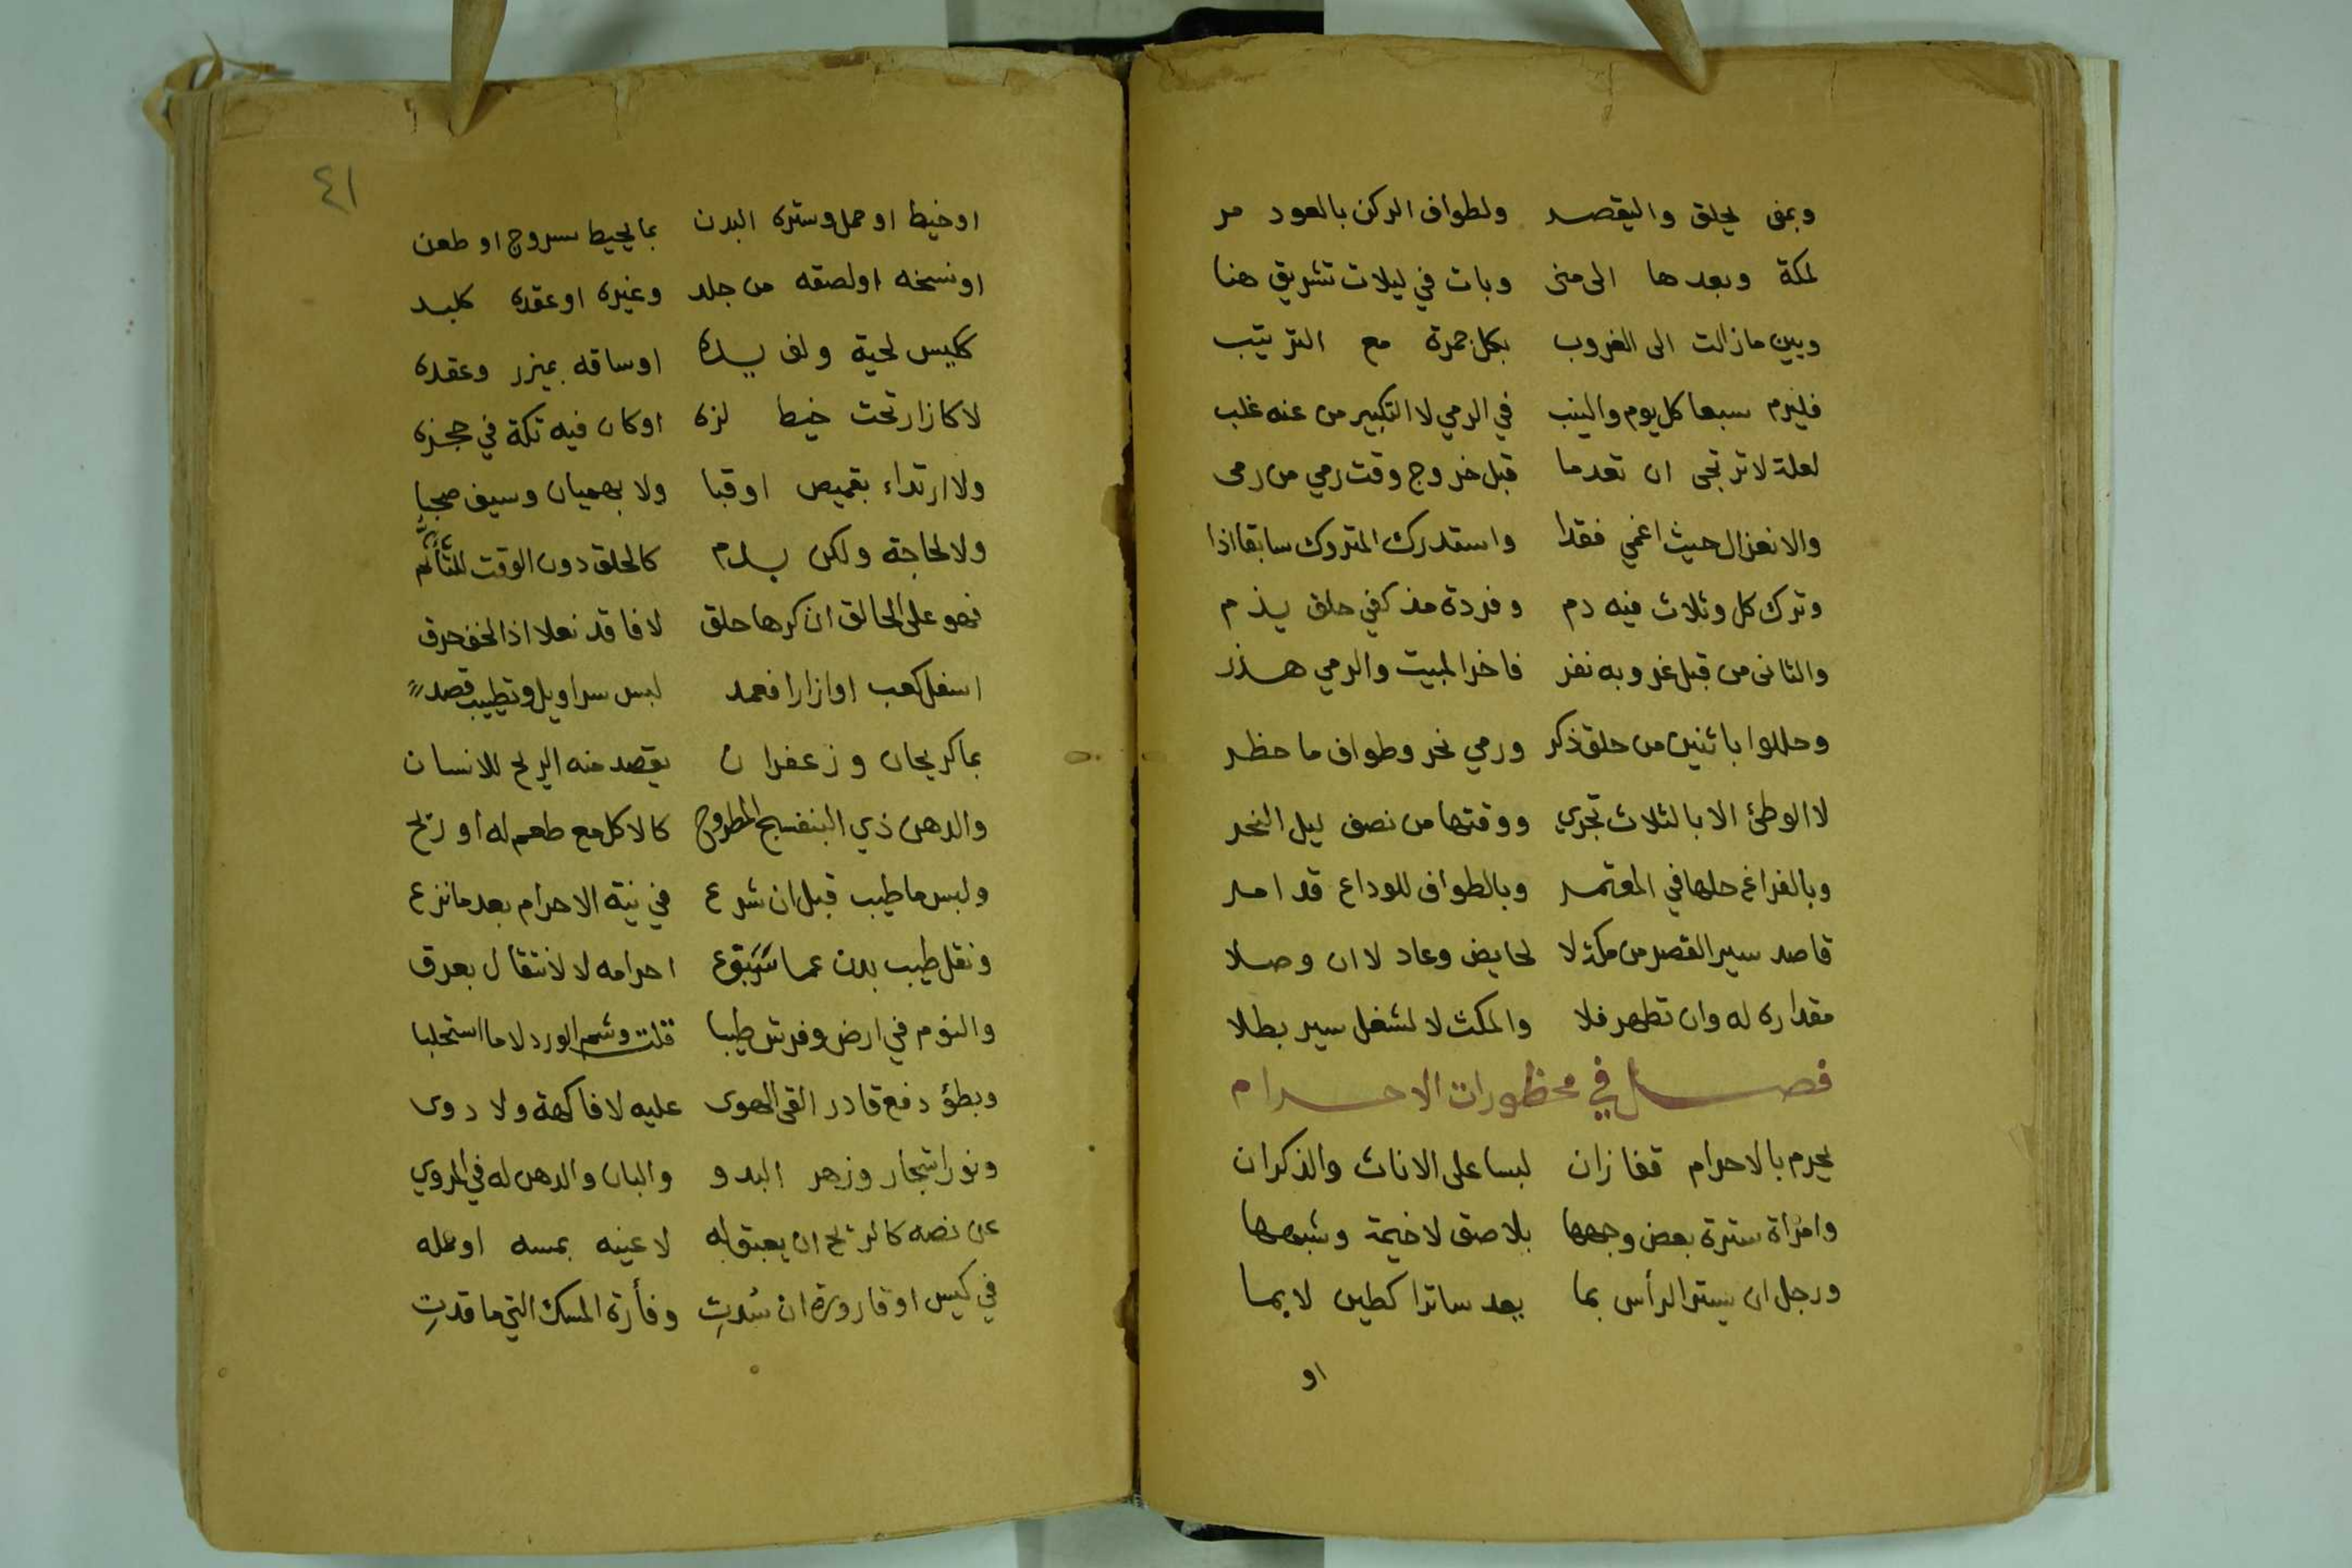 وبمنى يحلق واليقصر ولطواف الركن بالعود مر
لمكة وبعدها الى منى وبات في ليلات تشريق هنا
وبين ما زالت الى الغروب بكل جمرة مع الترتيب
فليرم سبعا كل يوم والينب في الرمي لا التكبير من عنه غلب
لعلة لا ترتجى ان تعدما قبل خروج وقت رمي من رمى
والانعزال حيث اغمي فقدا واستدرك المتروك سابقا اذا
وترك كل وثلاث فيه دم وفردة مذ كفي حلق يذم
والثانى من قبل غروبه نفر فاخرا لمبيت والرمي هذر
وحللوا باثنين من حلق ذكر ورمي نحر وطواف ما حظر
لا الوطئ الا بالثلاث تجري ووقتها من نصف ليل النحر
وبالفراغ حلها في المعتمر وبالطواف للوداع قد امر
قاصد سير القصر من مكة لا لحايض وعاد لا ان وصلا
مقداره له وان تطهر فلا والمكث لا لشغل سير بطلا
فصل في محظورات الاحرام
يحرم بالاحرام قفازان لبسا على الاناث والذكران
وامراة سترة بعض وجهها بلاصق لا خيمة وشبهها
ورجل ان يستر الرأس بما يعد ساترا كطين لا بما
او
٤١
او خيط او حمل وستره البدن بما يحيط سروج او طعن
او نسخه او لصقه من جلد وغيره او عقده كلبد
كليس لحية ولف يده او ساقه بميزر وعقده
لا كازار تحت خيط لزه او كان فيه تكة في حجزه
ولا ارتداء بقميص او قبا ولا بهميان وسيف صحبا
ولا لحاجة ولكن بدم كالحلق دون الوقت للتألم
فهو على الحالق ان كرها حلق لا فاقد نعلا اذا لخف حرق
اسفل كعب او ازارا فعمد لبس سراويل وتطييب قصد
بما كريحان وزعفران يقصد منه الريح للانسان
والدهن ذي البنفسج المطروح كالاكل مع طعم له او ريح
ولبس ما طيب قبل ان شرع في نية الاحرام بعد ما نزع
ونقل طيب بدن عما احرامه لا لانتقال بعرق
والنوم في ارض وفرش طيبا قلت وشم الورد لا ما استحلبا
وبطؤ دفع قادر القى الهوى عليه لا فاكهة ولا دوى
ونور اشجار وزهر البدو والبان والدهن له في المروي
عن نصه كالريح ان يعبق به لا عينه بمسه او حمله
في كيس او قارورة ان سُدتِ وفأرة المسك التي ما قدتِ